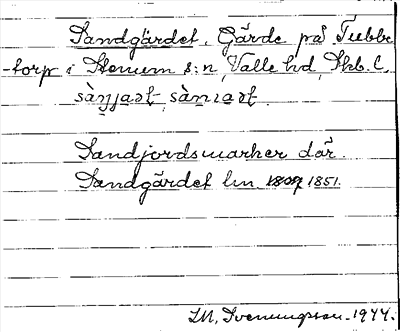 Sandgärdet. Gärde på Tubbe
-torp i Stenum s:n, Valle hd, Skb. L.
Sandjordsmarker där.
Sandgärdet lm 1851.
Svenungsson. 1944.